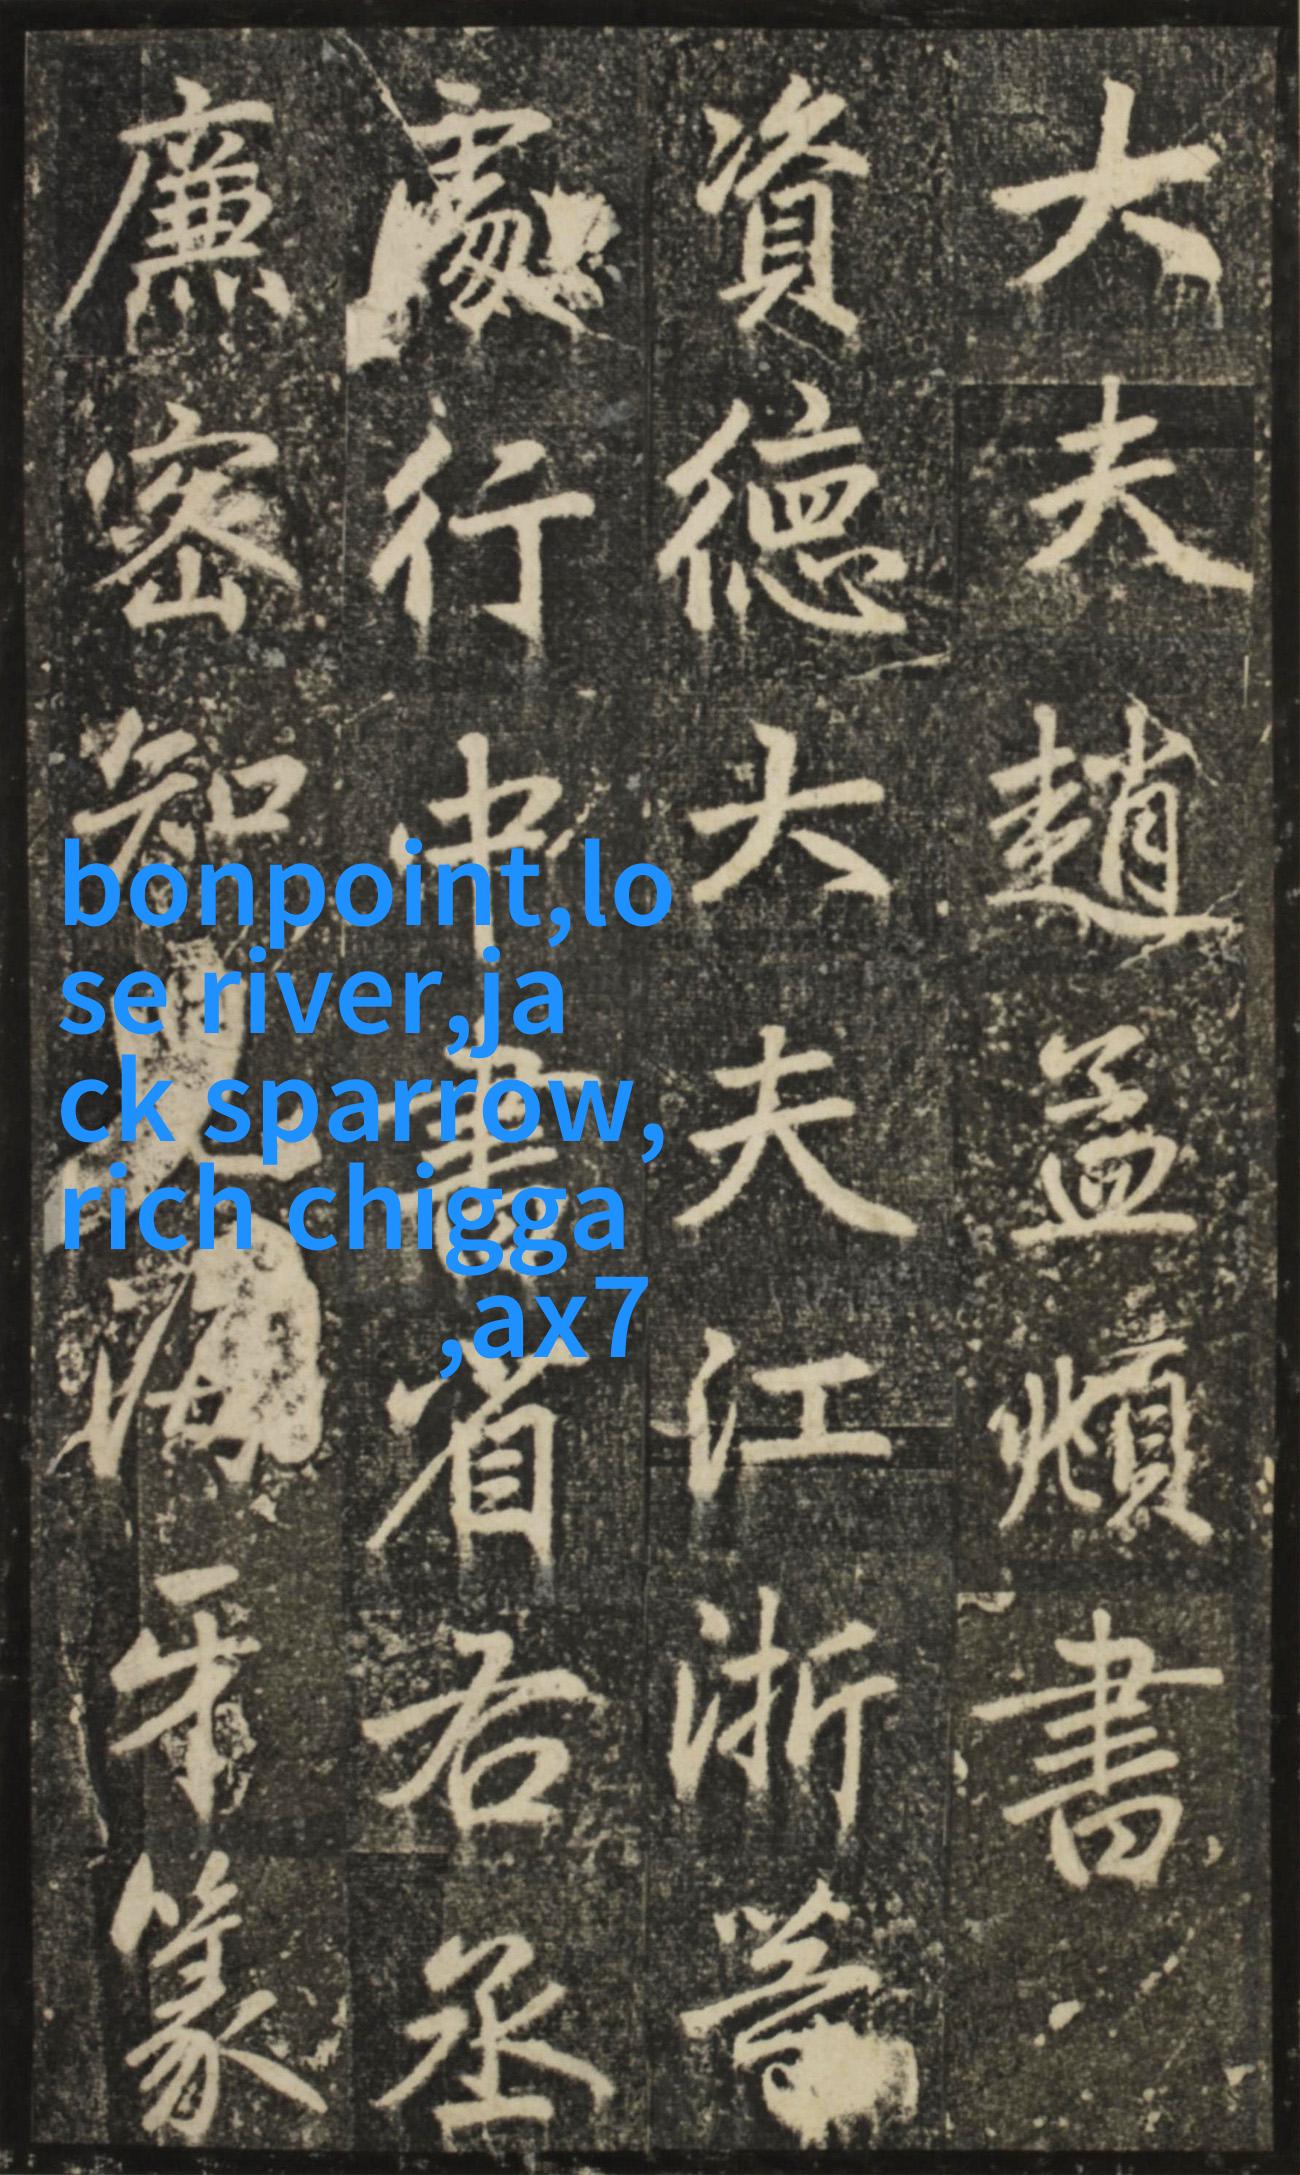 大夫趙孟頫書
資德大夫江浙等
處行中書省右丞
廉密知海牙篆
bonpoint,lo
se river,ja
ck sparrow,
rich chigga
,ax7